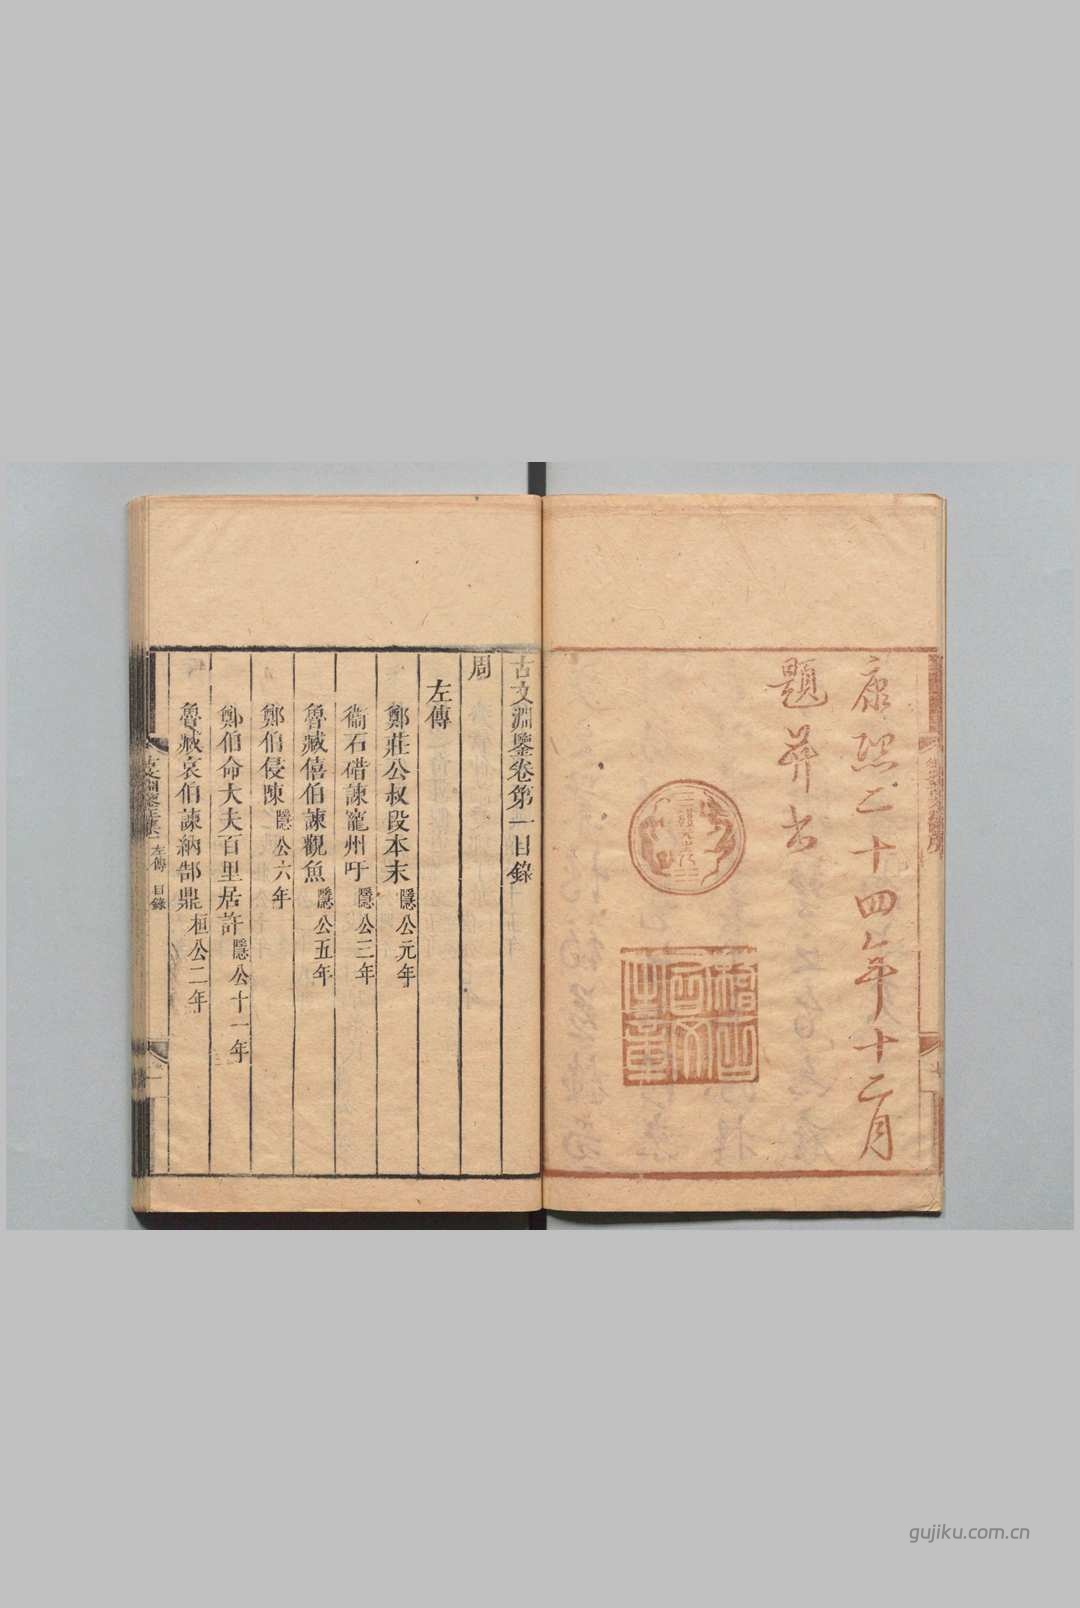 康熙二十四年十二月
題并書
稽古右文之章
古文淵鑒卷第一目錄
周
左傳
鄭莊公叔段本末 隱公元年
衞石碏諫寵州吁 隱公三年
魯臧僖伯諫觀魚 隱公五年
鄭伯侵陳 隱公六年
鄭伯命大夫百里居許 隱公十一年
魯臧哀伯諫納郜鼎 桓公二年
左傳 目錄
gujiku.com.cn